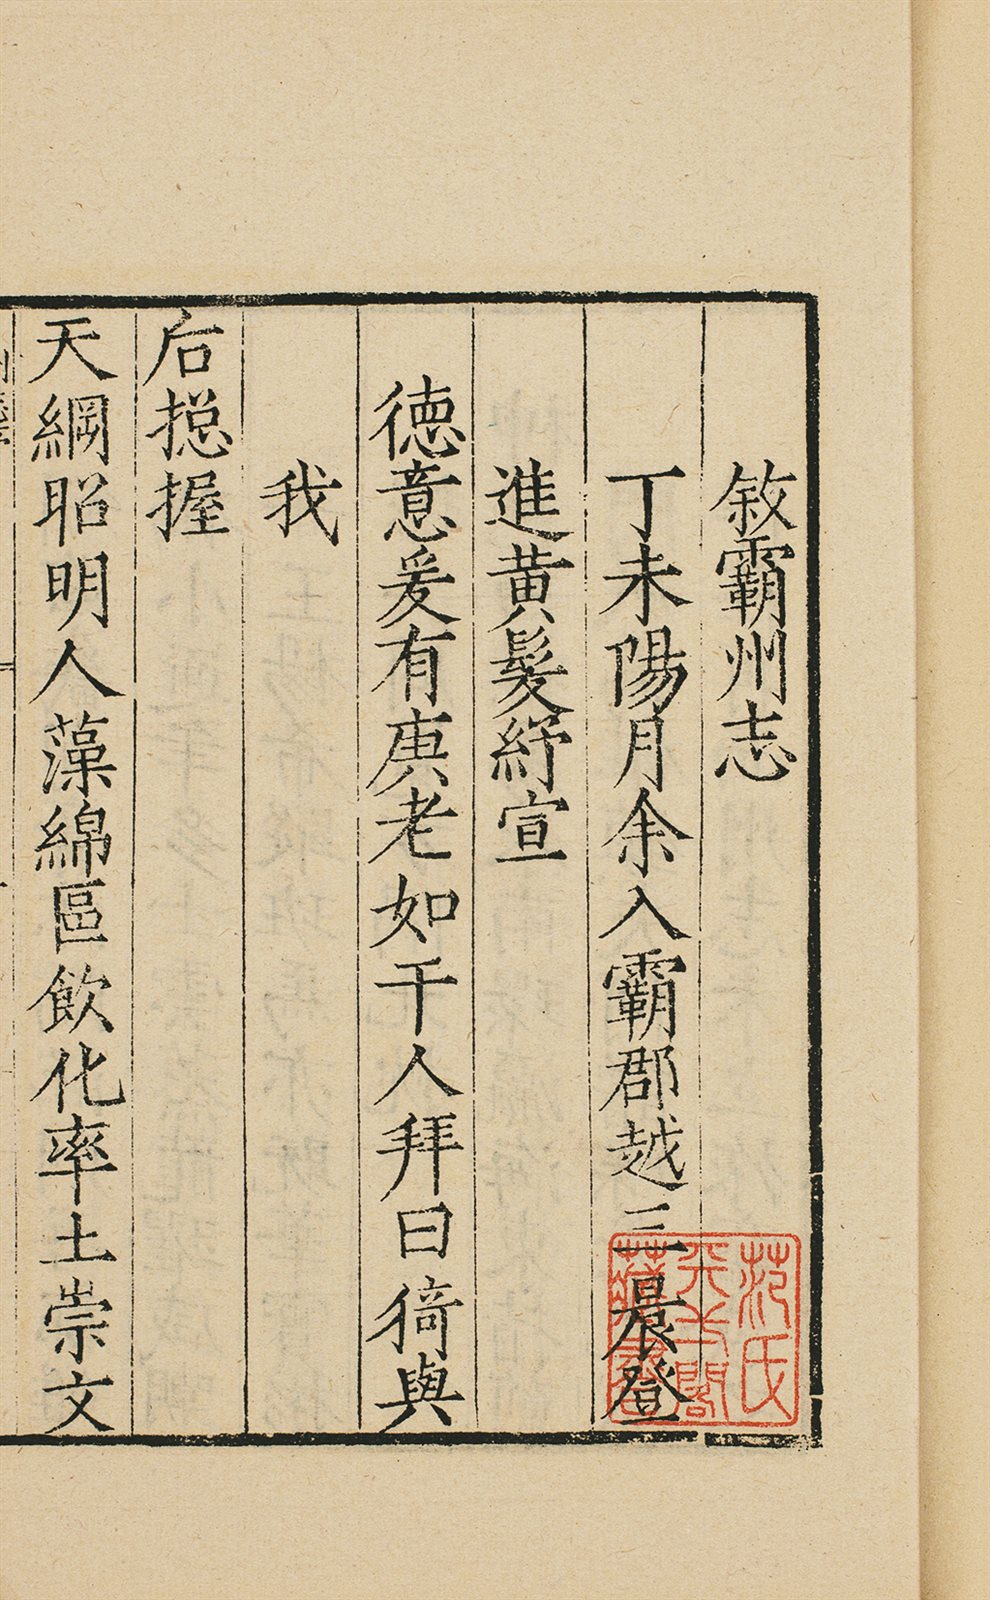 敘霸州志
丁未陽月余入霸郡越三晨登
進黃髮紓宣
德意爰有庚老如干人拜曰猗與
我
后摠握
天綱昭明人藻綿區飲化率土崇文
范氏
天一閣
藏書